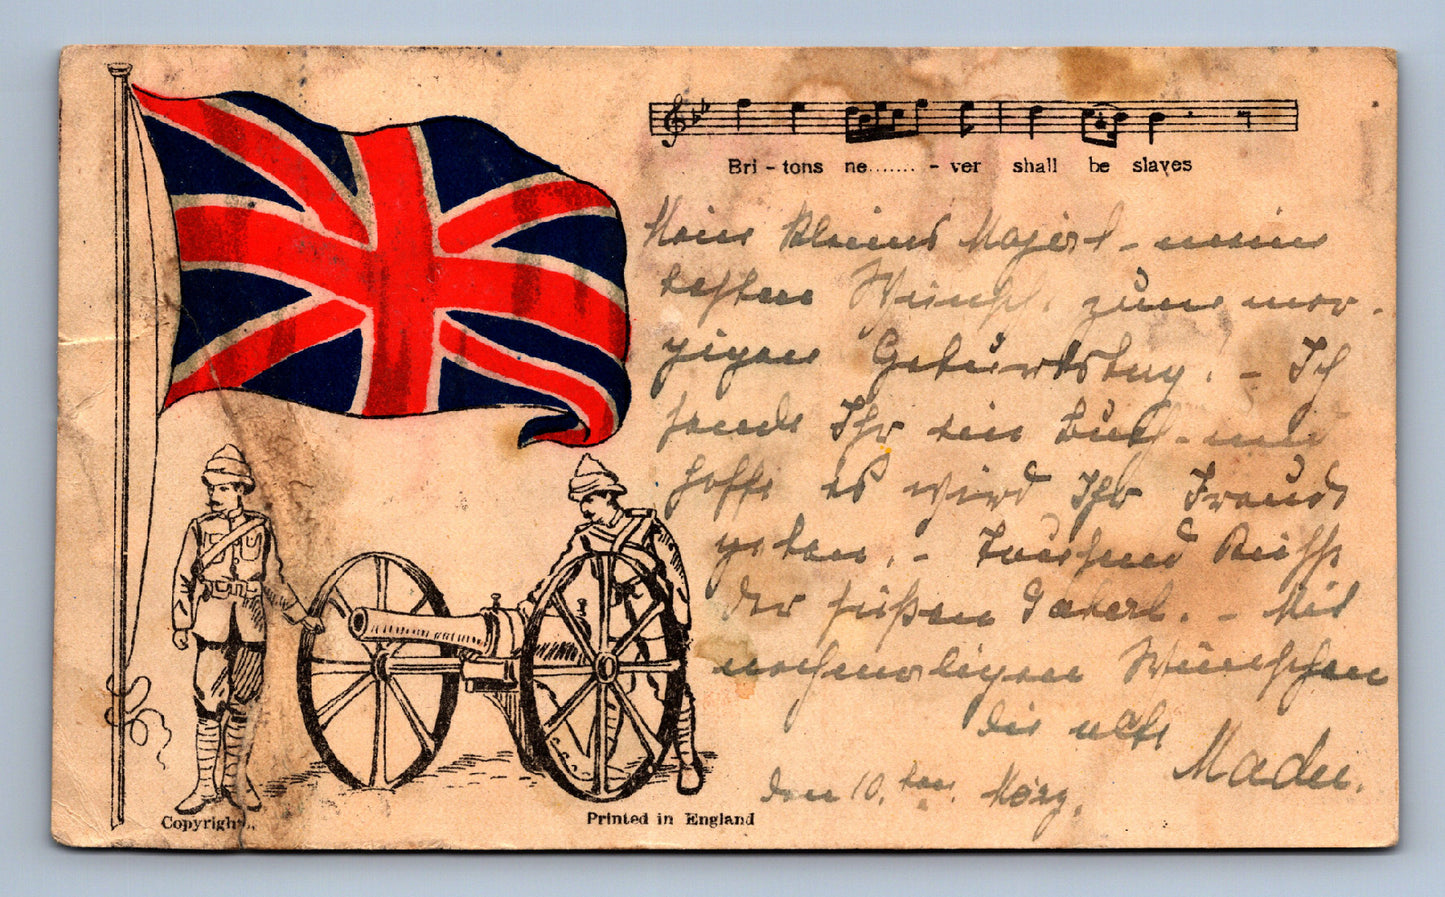 Bri - tons ne........ - ver shall be slaves
Mein kleines Majerl - meine
besten Wünsch. zum mor-
gigen Geburtstag. - Ich
sende Ihr ein Buch - und
hoffe es wird Ihr Freude
geben. - Tausend Küsse
der süßen - Mit
nochmaligen Wünschen
die alte
Madee.
den 10. ten. März.
Copyright.
Printed in England